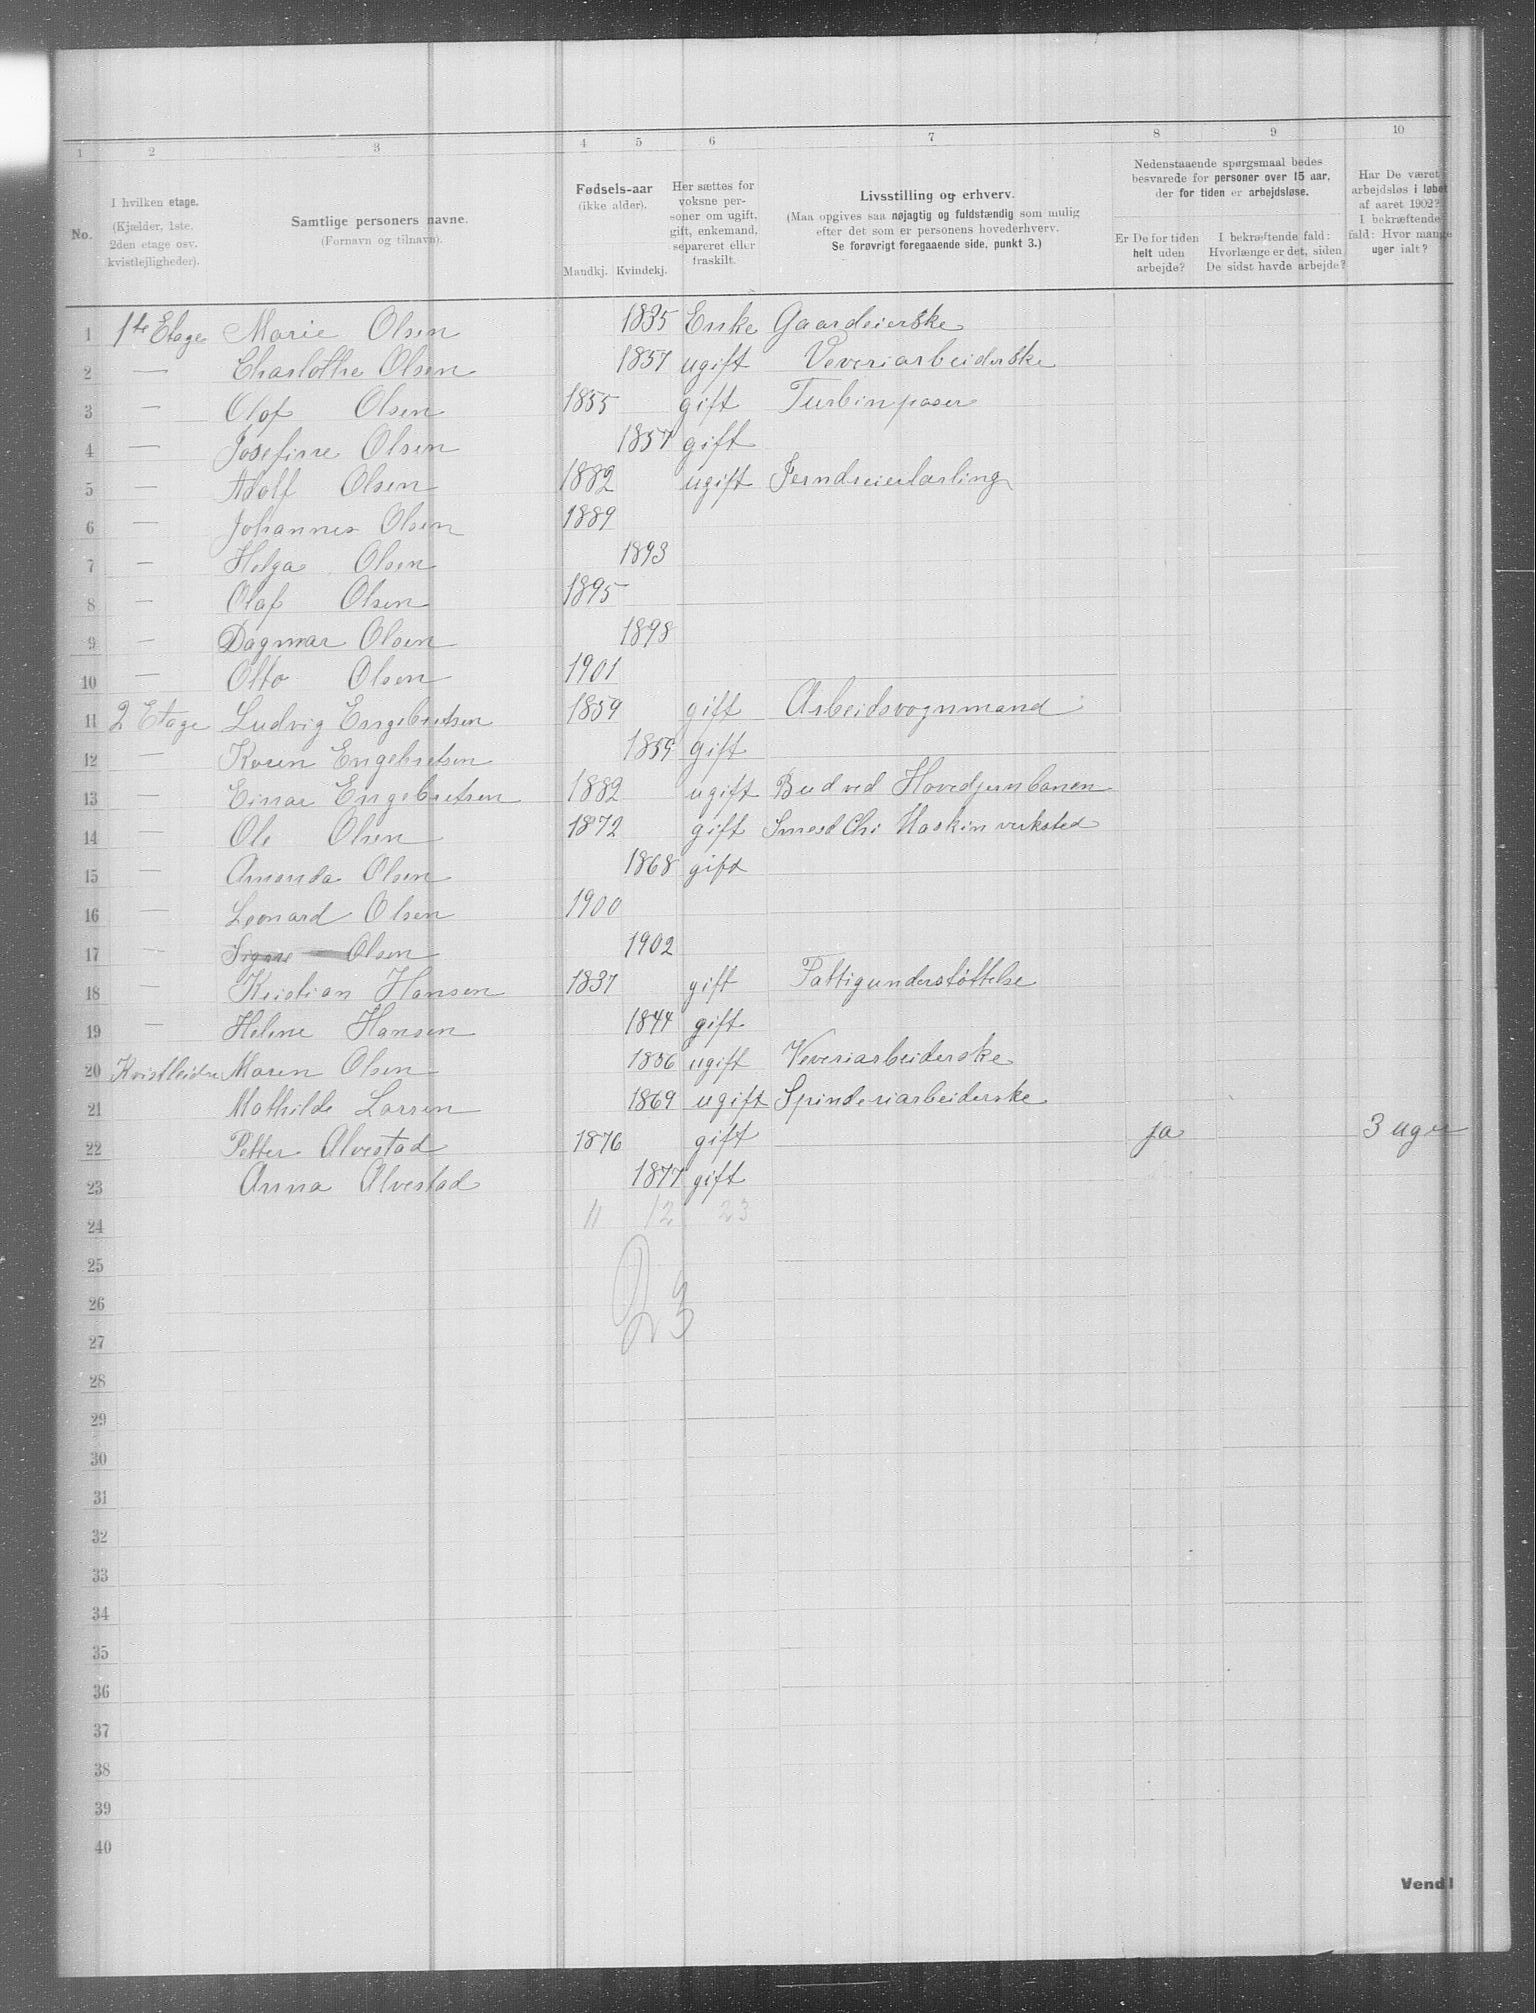 1 2 3 4 5 6 7 8 9 10
No.
I hvilken etage. (Kjælder, 1ste, 2den etage osv. kvistlejligheder).
Samtlige personers navne. (Fornavn og tilnavn).
Fødsels-aar (ikke alder). Mandkj. Kvindekj.
Her sættes for voksne personer om ugift, gift, enkemand, separeret eller fraskilt.
Livsstilling og erhverv. (Maa opgives saa nøjagtig og fuldstændig som mulig efter det som er personens hovederhverv. Se forøvrigt foregaaende side, punkt 3.)
Nedenstaaende spørgsmaal bedes besvarede for personer over 15 aar, der for tiden er arbejdsløse.
Er De for tiden helt uden arbejde?
I bekræftende fald: Hvorlænge er det, siden De sidst havde arbejde?
Har De været arbejdsløs i løbet af aaret 1902? I bekræftende fald: Hvor mange uger ialt?
1 1ste Etage Marie Olsen 1835 Enke Gaardeierske
2 — Charlothe Olsen 1857 ugift Veveriarbeiderske
3 — Olaf Olsen 1855 gift Turbinpaser
4 — Josefine Olsen 1857 gift
5 — Adolf Olsen 1882 ugift Jerndreierlærling
6 — Johannes Olsen 1889
7 — Helga Olsen 1893
8 — Olaf Olsen 1895
9 — Dagmar Olsen 1898
10 — Otto Olsen 1901
11 2 Etage Ludvig Engebretsen 1859 gift Arbeidsvognmand
12 — Karen Engebretsen 1859 gift
13 — Einar Engebretsen 1882 ugift Bud ved Hovedjernbanen
14 — Ole Olsen 1872 gift Smed Chr Maskin verksted
15 — Amanda Olsen 1868 gift
16 — Leonard Olsen 1900
17 — Signe Olsen 1902
18 — Kristian Hansen 1837 gift Fattigunderstøttelse
19 — Helene Hansen 1844 gift
20 Maren Olsen 1856 ugift Veveriarbeiderske
21 Mathilde Larsen 1869 ugift Spinderiarbeiderske
22 Petter Alvestad 1876 gift ja 3 uger
23 Anna Alvestad 1877 gift
24 11 12 23
25
26 23
27
28
29
30
31
32
33
34
35
36
37
38
39
40
Vend!